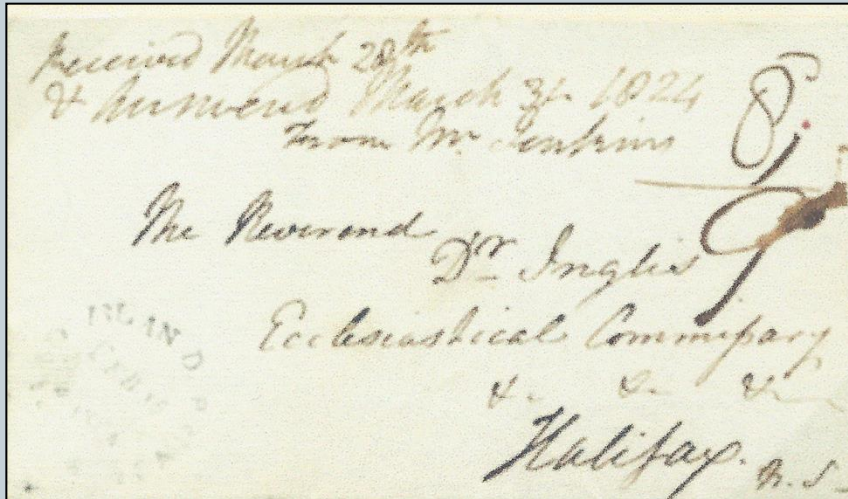 Received March 28th
& Answered March 31. 1824
From Mr. Jenkins
8
9
The Reverend
Dr Inglis
Ecclesiastical Commissary
&. &. &
Halifax. N. S